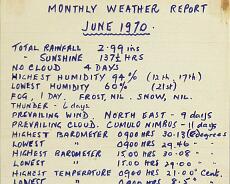 MONTHLY WEATHER REPORT
JUNE 1970.
TOTAL RAINFALL 2.99 ins
" SUNSHINE 137½ HRS
NO CLOUD 4 DAYS
HIGHEST HUMIDITY 94% (12th, 17th)
LOWEST HUMIDITY 60% (21st)
FOG, 1 DAY. FROST, NIL. SNOW, NIL.
THUNDER - 6 days
PREVAILING WIND. NORTH EAST - 9 days
PREVAILING CLOUD. CUMULO NIMBUS - 11 days
HIGHEST BAROMETER 0900 HRS 30.13 (degrees
LOWEST " 0900 HRS 29.46 -
HIGHEST BAROMETER 1500 HRS 30.08 -
LOWEST " 1500 HRS 29.00 -
HIGHEST TEMPERATURE 0900 HRS 21.0° Cent.
LOWEST " 0900 HRS